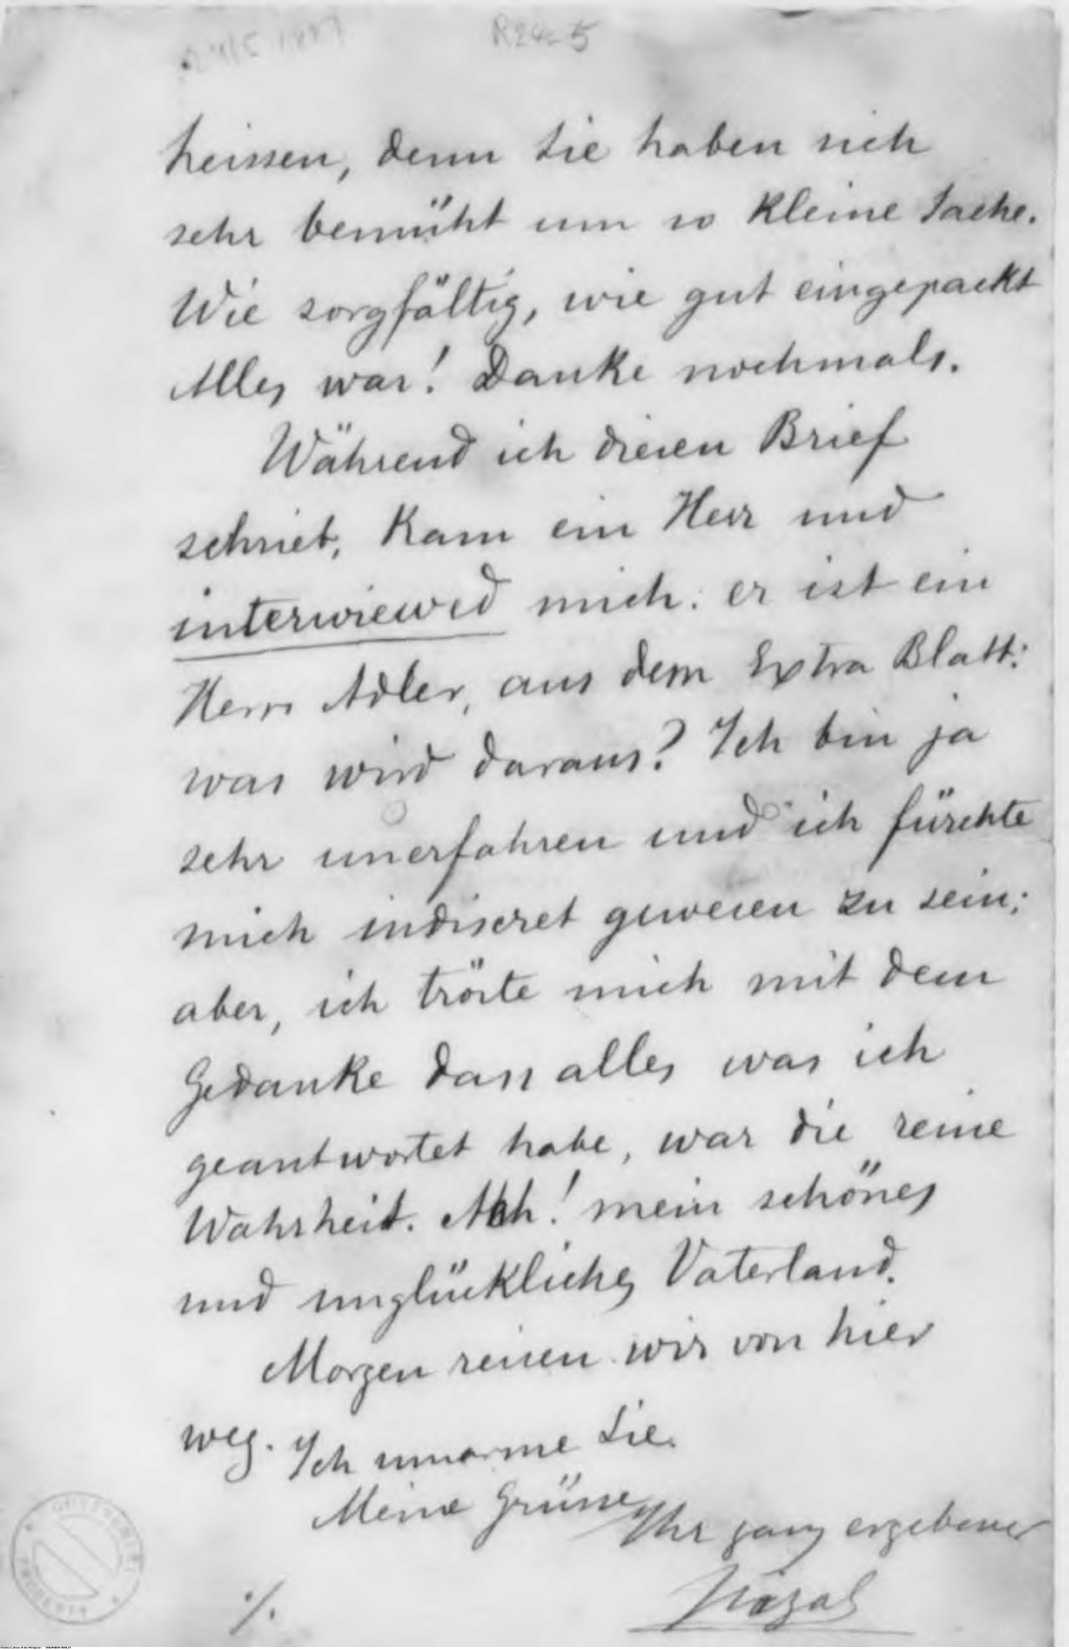 R24-5
heissen, denn Sie haben sich
sehr bemüht um so kleine Sache.
Wie sorgfältig, wie gut eingepackt
Alles war! Danke nochmals.
Während ich diesen Brief
schrieb, kam ein Herr und
interwiewed mich: er ist ein
Herr Adler, aus dem Extra Blatt:
was wird daraus? Ich bin ja
sehr unerfahren und ich fürchte
mich indiscret gewesen zu sein;
aber, ich tröste mich mit dem
Gedanke dass alles was ich
geantwortet habe, war die reine
Wahrheit. Ach! mein schönes
und unglückliches Vaterland.
Morgen reisen wir von hier
weg. Ich umarme Sie.
Meine Grüsse
Ihr ganz ergebener
Rizal